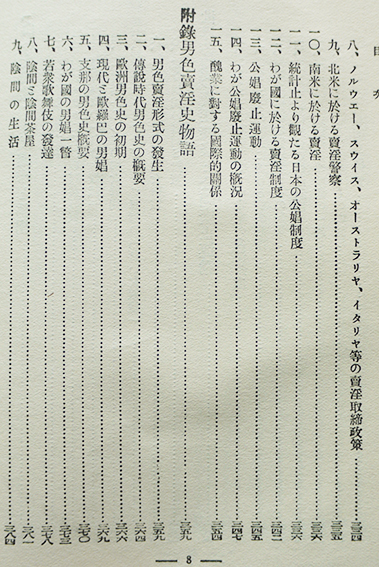 目次
八、ノルウエー、スウイス、オーストラリヤ、イタリヤ等の賣淫取締政策……三三四
九、北米に於ける賣淫警察……三三五
一〇、南米に於ける賣淫……三三六
一一、統計上より觀たる日本の公娼制度……三三六
一二、わが國に於ける賣淫制度……三四二
一三、公娼廢止運動……三四五
一四、わが公娼廢止運動の概況……三四七
一五、醜業に對する國際的關係……三五四
附錄男色賣淫史物語……三五九
一、男色賣淫形式の發生……三五九
二、傳說時代男色史の概要……三六四
三、歐洲男色史の初期……三六六
四、現代と歐羅巴の男娼……三六八
五、支那の男色史概要……三七〇
六、わが國の男娼一瞥……三七三
七、若衆歌舞伎の發達……三七八
八、陰間と陰間茶屋……三八一
九、陰間の生活……三八四
— 8 —